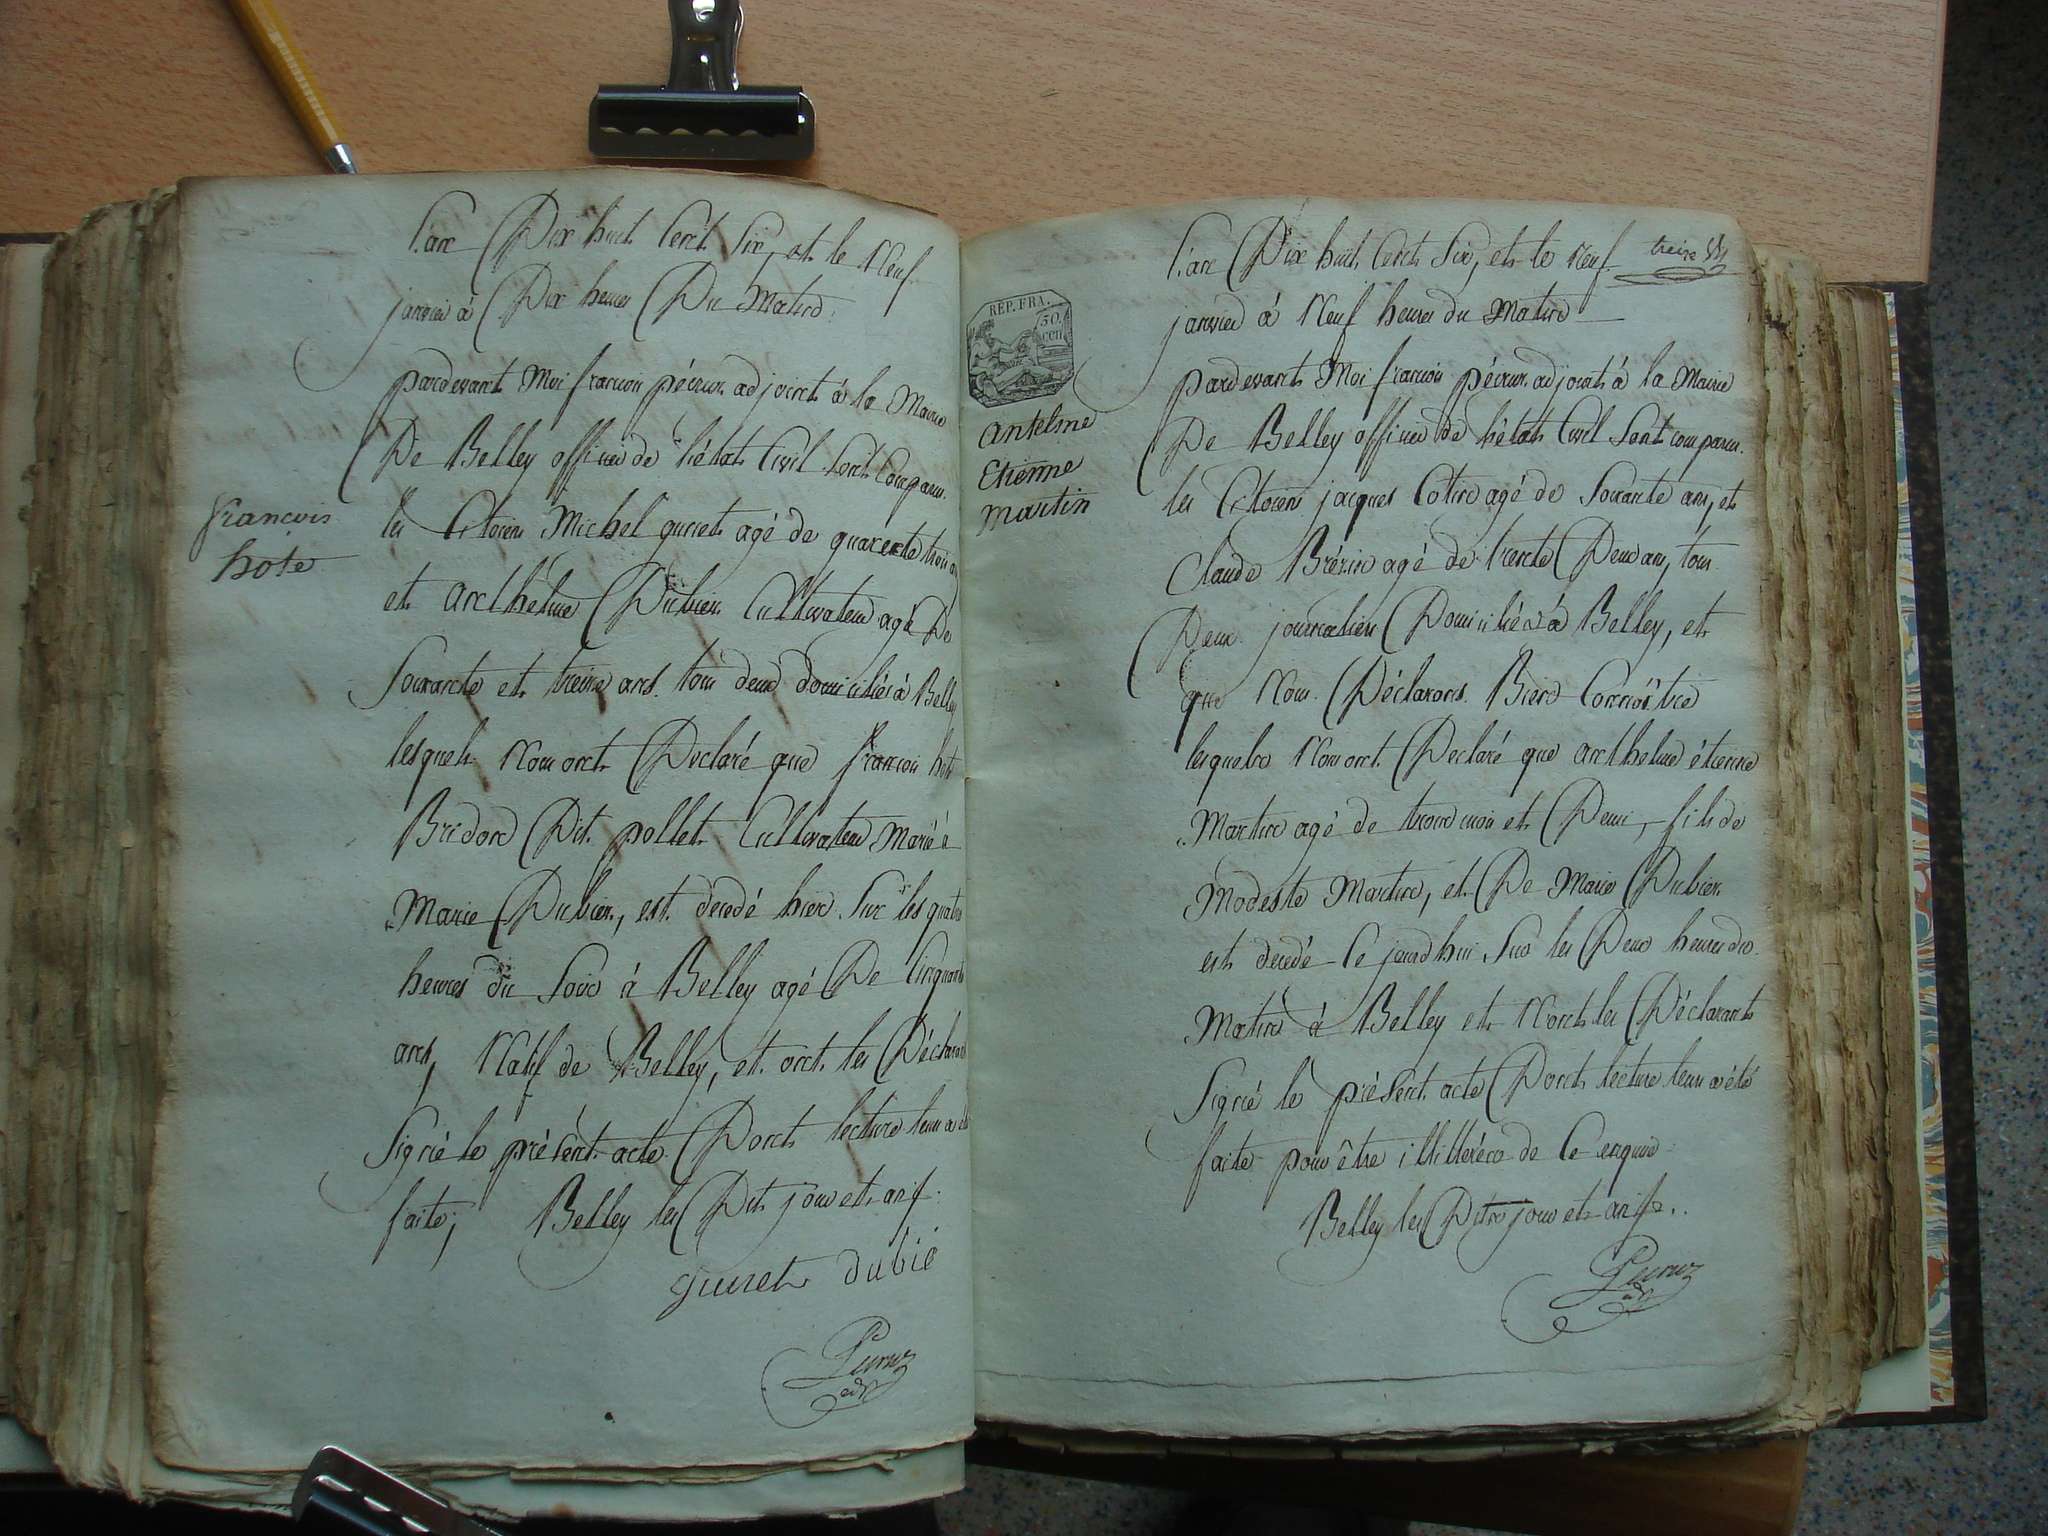 L'an Dix huit Cent Six, et le Neuf
janvier à Dix heures Du Matin
pardevant Moi françois pécoux adjoint à la Mairie
De Belley officier de l'état Civil Sont Comparus
françois
hote
les Citoiens Michel guret agé de quarente trois ans
et anthelme Dubier Cultivateur agé De
Soixante et treize ans tous deux domiciliés à Belley
lesquels Nous ont Declaré que françois hote
Bridon Dit pollet Cultivateur Marié à
Marie Dubier, est decedé hier Sur les quatre
heures du Soir à Belley agé De Cinquante
ans, Natif de Belley, et ont les Déclarants
Signé le présent acte Dont lecture leur a été
faite; Belley les Dit jour et an f.
guret dubié
adjt
L'an Dix huit Cent Six, et le Neuf
treize
janvier à Neuf heures du Matin
REP. FRA.
50.
CEN
pardevant Moi françois pécoux adjoint à la Mairie
De Belley officier de l'état Civil Sont comparus
antelme
Etienne
martin
les Citoiens jacques Cotin agé de Soixante ans, et
Claude Brézin agé de trente Deux ans, tous
Deux journaliers Domiciliés à Belley, et
que Nous Déclarons Bien Connoître
lesquels Nous ont Declaré que anthelme étienne
Martin agé de trois mois et Demi, fils de
Modeste Martin, et De Marie Dubier
est decedé Ce jourd'hui Sur les Deux heures du
Matin à Belley et N'ont les Déclarants
Signé le présent acte Dont lecture leur a été
faite pour être illitérés de Ce enquis
Belley les Dits jour et an f.
adjt